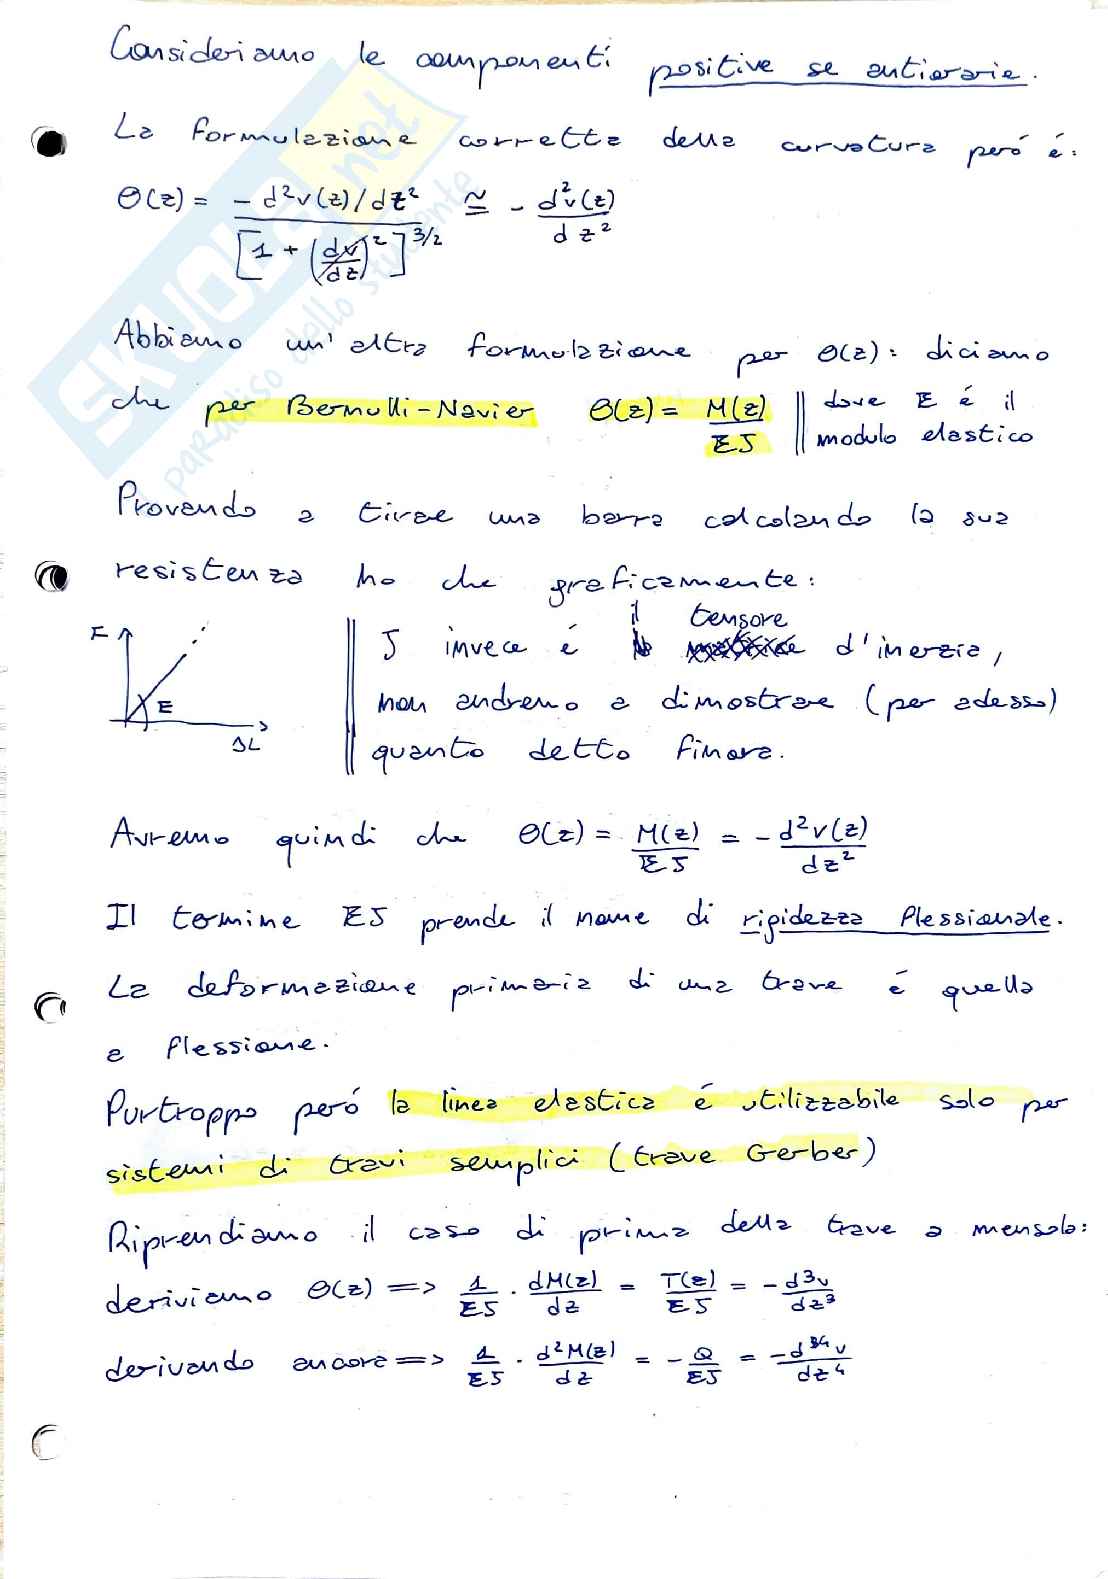 Consideriamo le componenti positive se antiorarie.
La formulazione corretta della curvatura però é:
Θ(z) = -d²v(z)/dz² / [1 + (dv/dz)²]^3/2 ≅ - d²v(z)/dz²
Abbiamo un'altra formulazione per Θ(z): diciamo
che per Bernulli-Navier Θ(z) = M(z)/EJ || dove E é il
modulo elastico
Provando a tirare una barra calcolando la sua
resistenza ho che graficamente:
F
E
ΔL
J invece é il tensore d'inerzia,
non andremo a dimostrare (per adesso)
quanto detto finora.
Avremo quindi che Θ(z) = M(z)/EJ = - d²v(z)/dz²
Il termine EJ prende il nome di rigidezza flessionale.
La deformazione primaria di una trave é quella
a flessione.
Purtroppo peró la linea elastica é utilizzabile solo per
sistemi di travi semplici (trave Gerber)
Riprendiamo il caso di prima della trave a mensola:
deriviamo Θ(z) => 1/EJ · dM(z)/dz = T(z)/EJ = -d³v/dz³
derivando ancora => 1/EJ · d²M(z)/dz = - Q/EJ = -d⁴v/dz⁴
SKUOLA.net
il paradiso dello studente